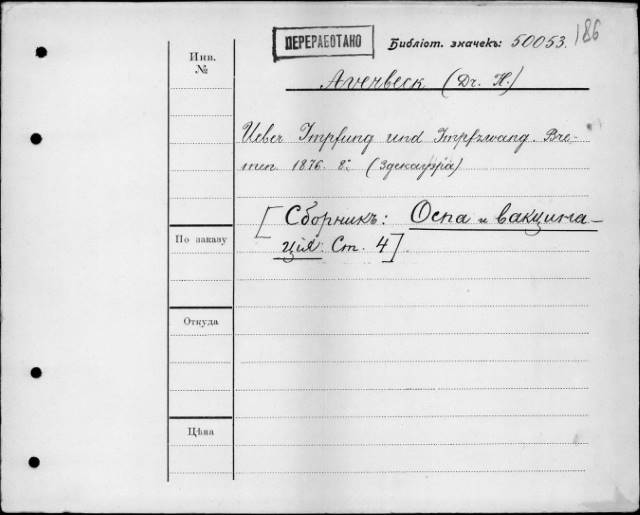 186
ПЕРЕРАБОТАНО
Библіот. значекъ: 50053.
Инв.
№
Averbeck (Dr. H.)
Ueber Impfung und Impfzwang. Bre-
men 1876. 8º. (Здекауэра)
[Сборникъ: Оспа и вакцина-
ція. Ст. 4].
По заказу
Откуда
Цѣна